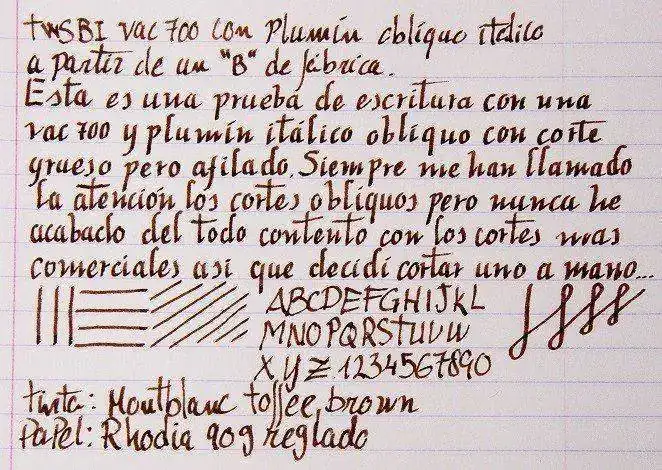 TWSBI vac 700 con Plumín oblíquo itálico
a partir de un "B" de fábrica.
Esta es una prueba de escritura con una
vac 700 y plumín itálico oblíquo con corte
grueso pero afilado. Siempre me han llamado
la atención los cortes oblíquos pero nunca he
acabado del todo contento con los cortes mas
comerciales asi que decidí cortar uno a mano...
ABCDEFGHIJKL
MNOPQRSTUVW
XYZ.1234567890
tinta: Montblanc toffee brown
PaPel: Rhodia 90g reglado